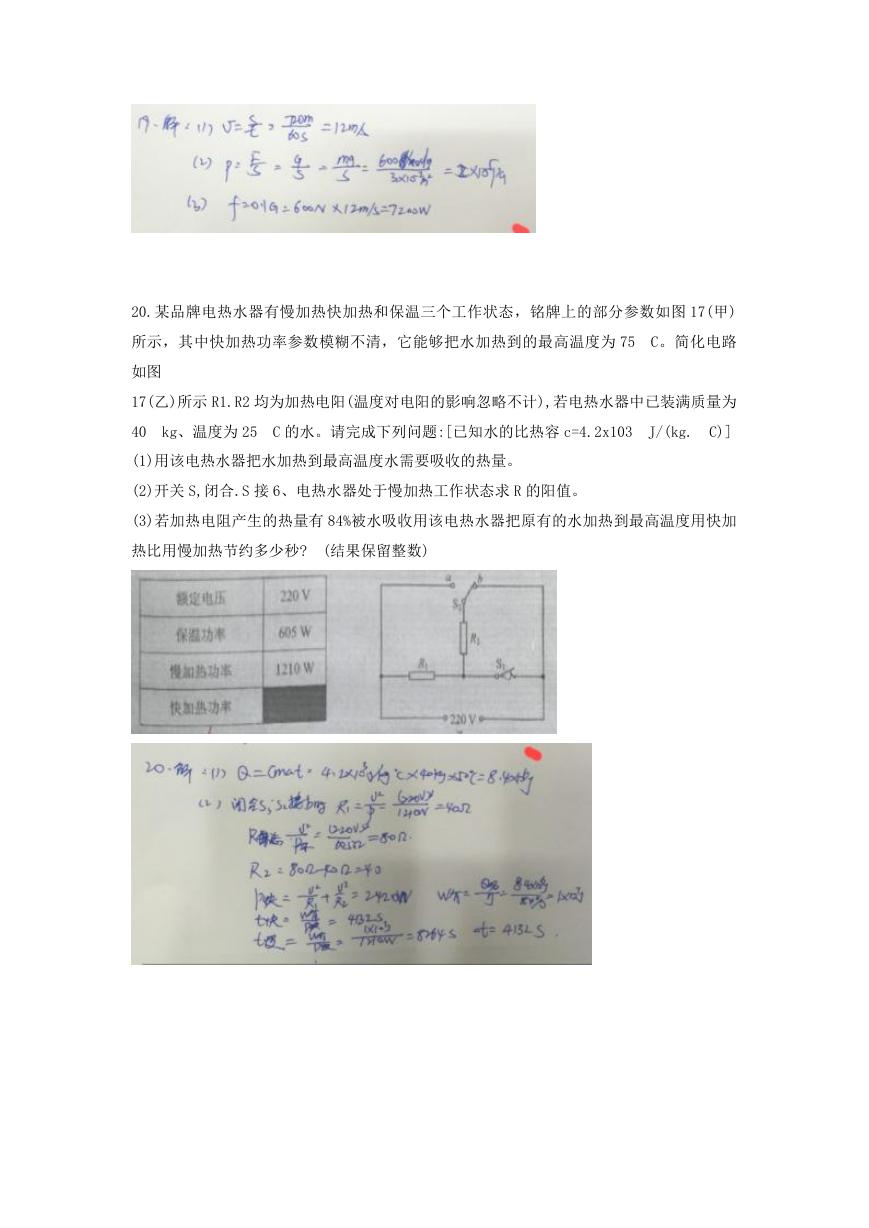 19.解:(1) V=S/t=720m/60s=12m/s
(2) p=F/S=G/S=mg/S= =2×10⁵Pa
(3) f=0.1G=600N×12m/s=7200W
20.某品牌电热水器有慢加热快加热和保温三个工作状态，铭牌上的部分参数如图 17(甲)
所示，其中快加热功率参数模糊不清，它能够把水加热到的最高温度为 75 C。简化电路
如图
17(乙)所示 R1.R2 均为加热电阳(温度对电阳的影响忽略不计),若电热水器中已装满质量为
40 kg、温度为 25 C 的水。请完成下列问题:[已知水的比热容 c=4.2x103 J/(kg. C)]
(1)用该电热水器把水加热到最高温度水需要吸收的热量。
(2)开关 S,闭合.S 接 6、电热水器处于慢加热工作状态求 R 的阳值。
(3)若加热电阻产生的热量有 84%被水吸收用该电热水器把原有的水加热到最高温度用快加
热比用慢加热节约多少秒? (结果保留整数)
额定电压 220 V
保温功率 605 W
慢加热功率 1210 W
快加热功率
a b
S₂
R₂
R₁ S₁
220 V
20.解:(1) Q=cm△t=4.2×10³J/kg℃×40kg×50℃=8.4×10⁶J
(2) 闭合S₁ S₂接b时 R₁=U²/P= =40Ω
=80Ω.
R₂=80Ω-40Ω=40
P快=U²/R₁+U²/R₂=2420W W有= =1×10⁷J
t快= =4132S
t慢= =8264S △t=4132S.